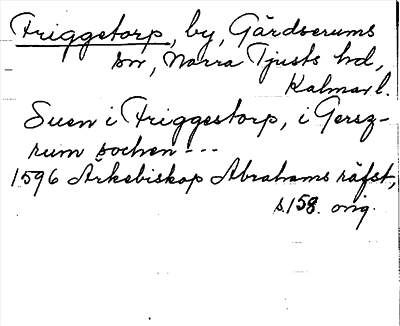 Friggetorp, by, Gärdserums
sn, Norra Tjusts hd,
Kalmar l.
Suen i Friggestorp, i Gersz-
rum sochen ---
1596 Ärkebiskop Abrahams räfst,
s. 158. orig.